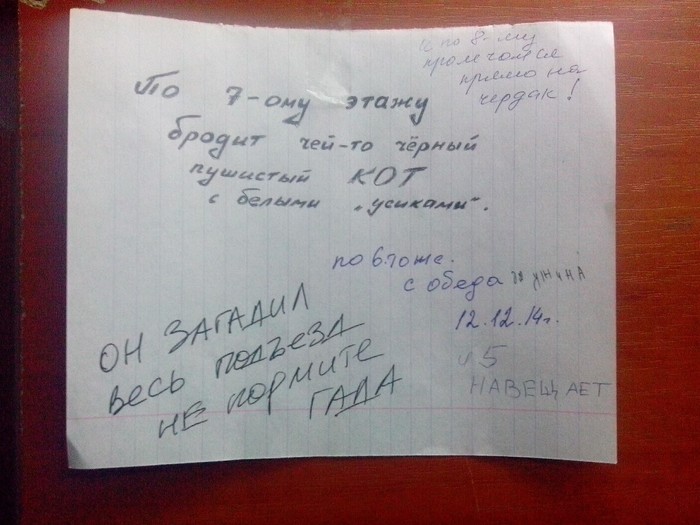 и по 8-му
промчался
прямо на
чердак!
По 7-ому этажу
бродит чей-то чёрный
пушистый КОТ
с белыми „усиками".
по 6. тоже.
с обеда до ужина
12.12.14г.
и 5
НАВЕЩАЕТ
ОН ЗАГАДИЛ
ВЕСЬ ПОДЪЕЗД
НЕ КОРМИТЕ
ГАДА